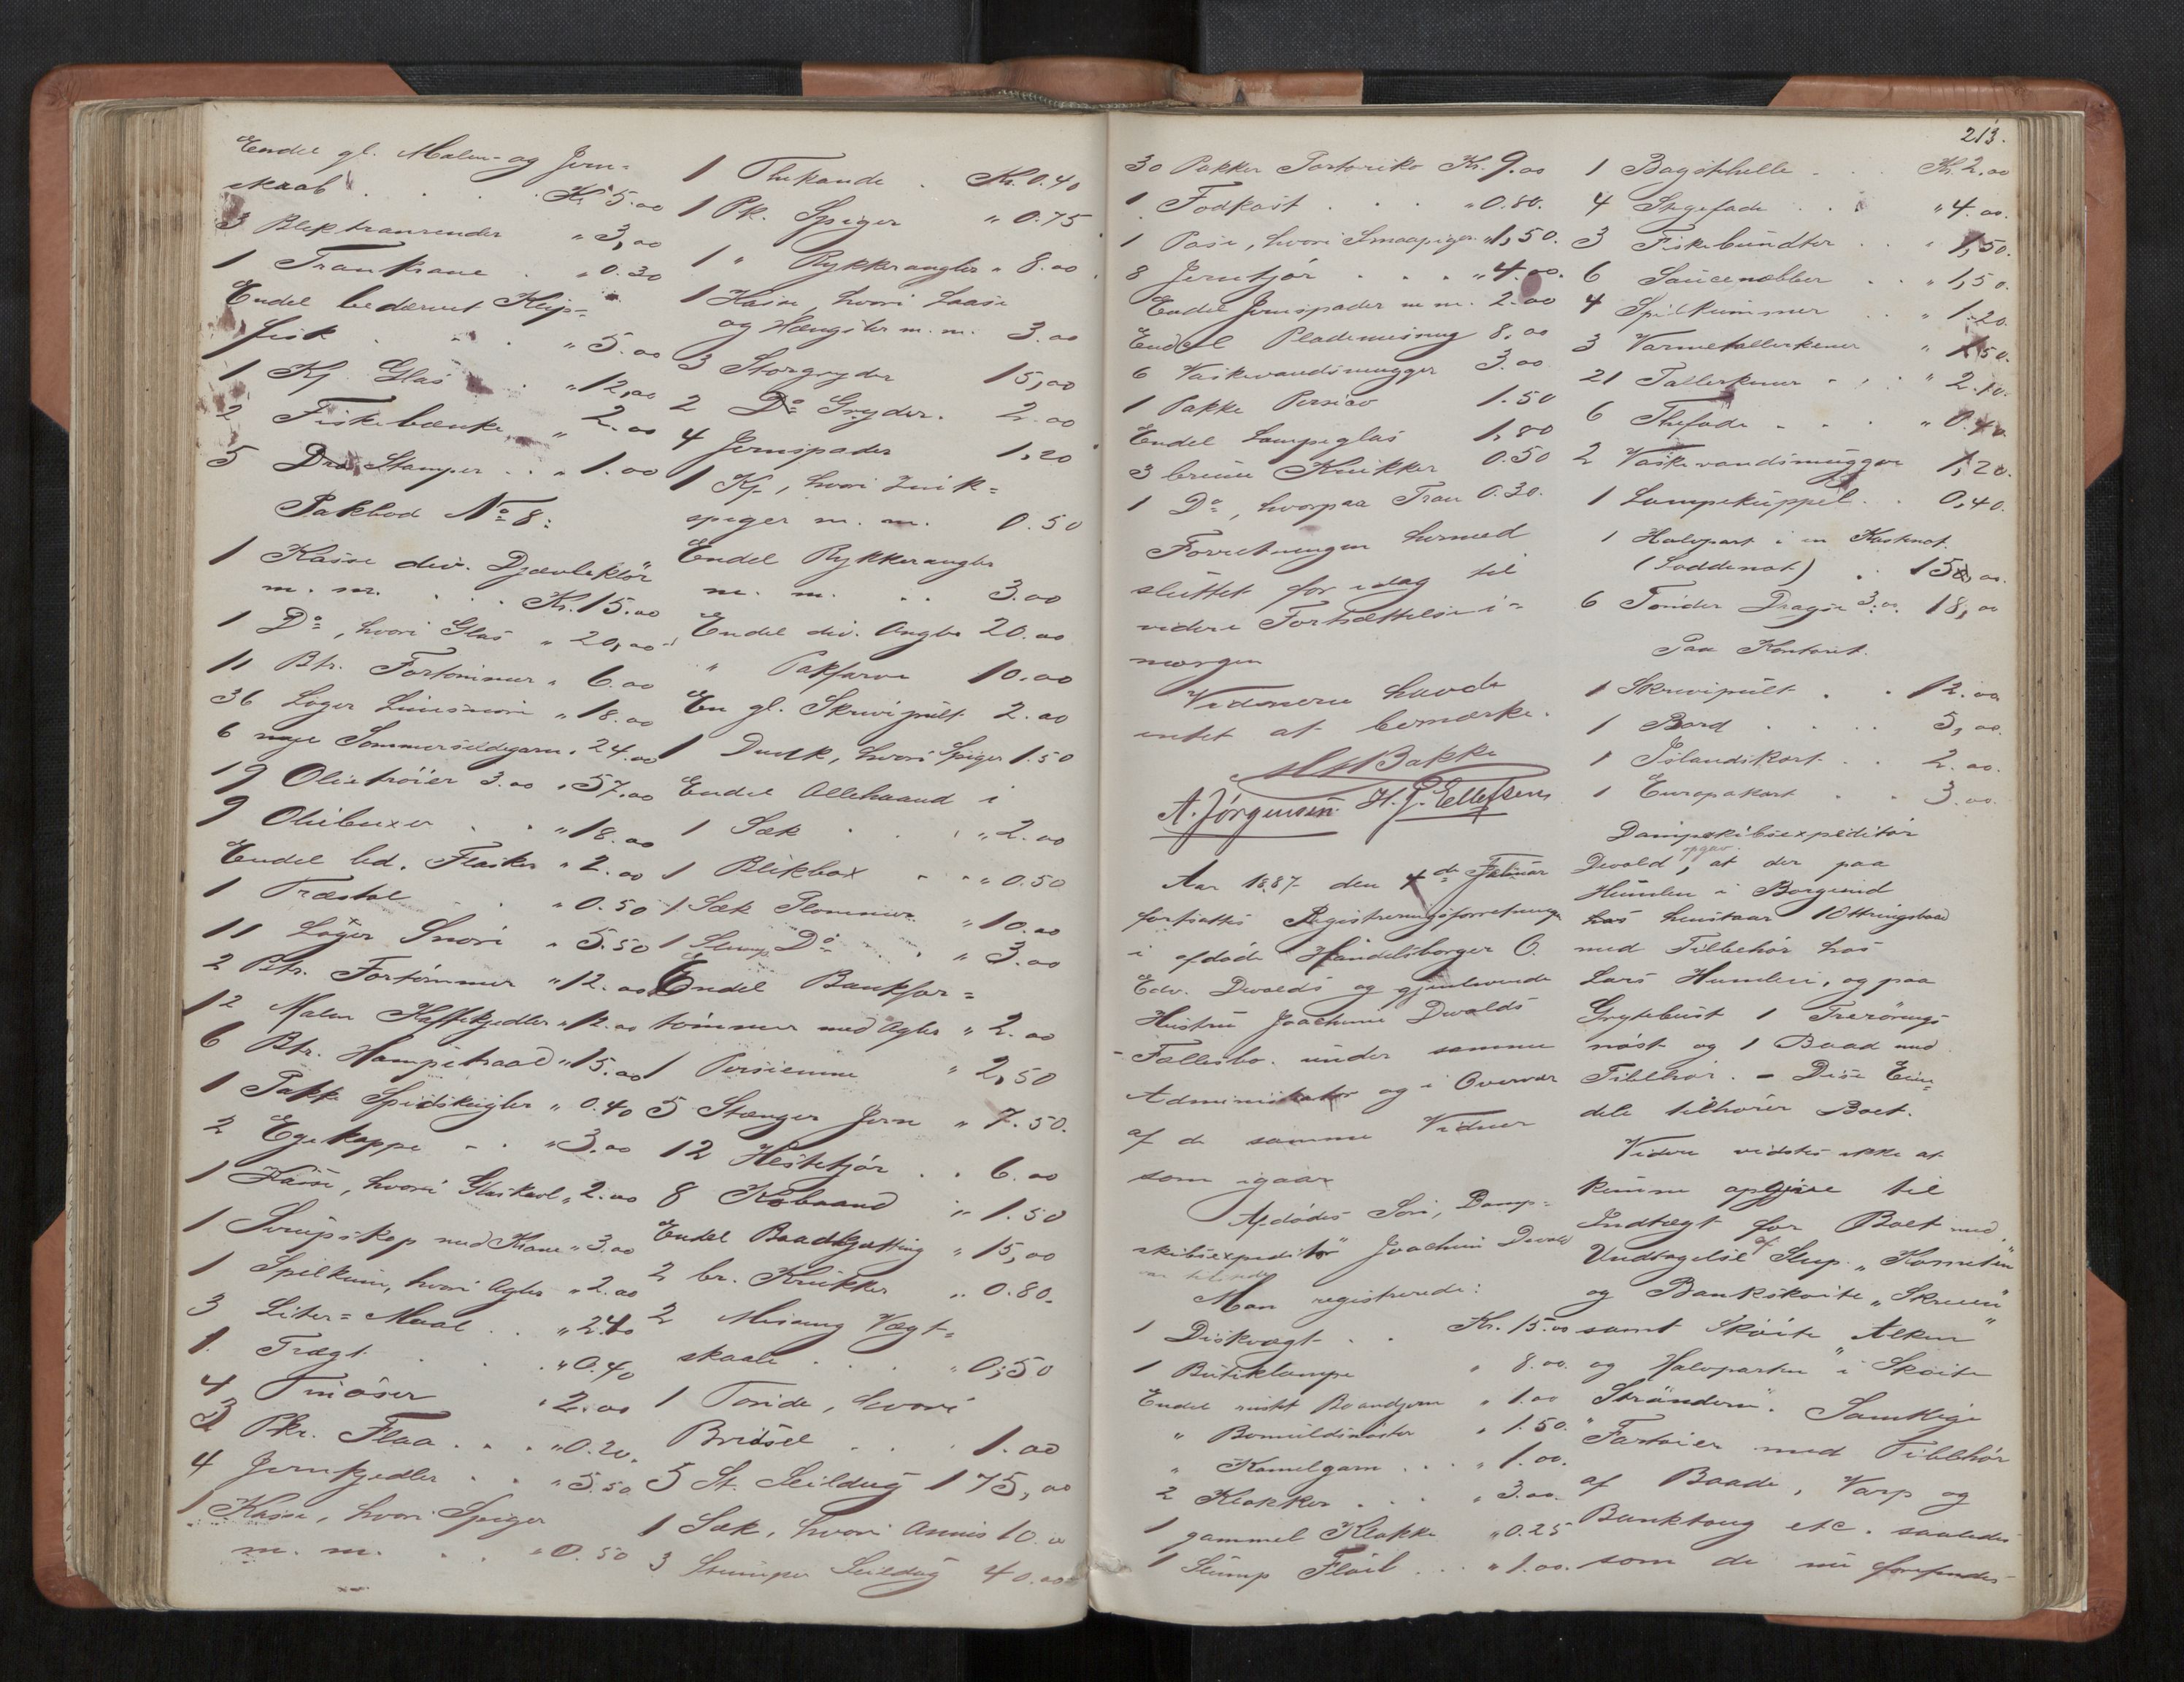 Endel gl. Malm- og Jern-
skab . . . Kr. 5.00
3 Bliktranrender " 3,00
1 Trankrane . " 0.30
Endel bedærvet Klip-
fisk . . . " 5.00
1 Kj. Glas . " 12,00
2 Fiskebænke " 2.00
5 Stamper . . " 1.00
Pakbod No 8:
1 Kasse div. Djævleklør
m. m. . . . Kr. 15.00
1 Do, hvori Glas " 20,00
11 Btr. Fortømmer " 6.00
36 Løger Liinsnøre " 18.00
6 nye Sommersildegarn " 24.00
19 Olietrøier 3.00 " 57.00
9 Oliebuxer . . " 18.00
Endel bd. Flasker " 2.00
1 Træstol . . " 0.50
11 Løger Snøre " 5.50
2 Btr. Fortømmer " 12.00
12 Malm Kaffekjedler " 12.00
6 Btr. Hampetraad " 15.00
1 Pakke Spidskugler " 0.40
2 Egekopper . . " 3.00
1 Kasse, hvori Glaskavl " 2.00
1 Sirupskop med Krane " 3.00
1 Spilkum, hvori Agler " 2.00
3 Liter-Maal . . " 2.40
1 Tragt . . . " 0.40
4 Tinøser " 2.00
3 Pkr. Flaa . . . " 0.20
4 Jernkjedler . . " 5.50
1 Kasse, hvori Spiger
m. m. . . " 0.50
1 Thekande . Kr. 0.40
1 Pk. Spiger " 0.75
1 " Rykkerangler " 8.00
1 Kasse, hvori Laase
og Hængsler m. m. 3.00
3 Storgryder 15,00
2 Do Gryder . 2.00
4 Jernspader 1,20
1 Kj., hvori Zink-
spiger m. m. 0.50
Endel Rykkerangler
m. m. . . 3.00
Endel div. Angler 20.00
" Pakfarve 10.00
En gl. Skrivepult 2.00
1 Dunk, hvori Spiger 1.50
Endel Allehaand i
1 Sæk . . . " 2.00
1 Blikbox . . " 0.50
1 Sæk Plommer " 10.00
1 Slump Do . . " 3.00
Endel Bankfor-
tømmer med Agler " 2.00
1 Persienne " 2,50
5 Stænger Jern " 7.50.
12 Hestetjor . . 6.00
8 Kobaand " 1.50
Endel Baadkjætting " 15,00
2 br. Krukker " 0.80
2 Messing Vægt-
skaale . . . " 0,50
1 Tønde, hvori
Bridsel . . . 1.00
5 St. Seildug 175,00
1 Sæk, hvori Annis 10.00
3 Stumper Seildug 40.00
213.
30 Pakker Portoriko Kr. 9.00
1 Fodkost . . . " 0.80.
1 Pose, hvori Smaapiger " 1,50.
8 Jerntjor . . . " 4.00.
Endel Jernspader m m. 2.00
Endel Plademessing 8.00
6 Vaskevandsmugger 3.00
1 Pakke 1.50
Endel Lampeglas 1,80
3 brune Krukker 0.50
1 Do, hvorpaa Tran 0.30.
Forretningen hermed
sluttet for idag til
videre Fortsættelse i-
morgen
Vidnerne havde
intet at bemærke.
Bakke
A. Jørgensen H. J. Ellefsen
Aar 1887 den 4de Februar
fortsattes Registreringsforretningen
i afdøde Handelsborger O.
Edv. Devolds og gjenlevende
Hustru Joachime Devolds
Fællesbo under samme
Administrator og i Overvær
af de samme Vidner
som igaar
Afdødes Søn, Damp-
skibsexpeditør Joachim Devold
var tilstede
Man registrerede:
1 Diskvægt . . Kr. 15.00
1 Butiklampe " 8.00.
Endel rustet Baandjern " 1.00
" Bomuldsnøster " 1.50.
" Kamelgarn . . . " 1.00.
2 Klokker . . . " 3.00.
1 gammel Klokke " 0.25
1 Slump Fløil . . . " 1.00.
1 Bagstehelle . . . Kr. 2,00
4 Stegefade . . . " 4.00.
3 Fiskebundter . . " 1,50.
6 Saucenæbber . . " 1,50.
4 Spilkummer . . " 1.20.
3 Varmetallerkener " 1,50.
21 Tallerkener . . . " 2.10.
6 Thefade . . . " 0.40.
2 Vaskevandsmugger 1,20.
1 Lampekuppel . . 0,40.
1 Halvpart i en Kastenot
(Loddenot) . 150,00.
6 Tønder Dragse 3.00. 18,00
Paa Kontoret.
1 Skrivepult . . 12.00
1 Bord . . . . 5,00.
1 Islandskart . . 2.00.
1 Europakart . . 3.00.
Dampskibsexpeditør
Devold opgav, at der paa
Humlen i Borgund
hos henstaar 1 Ottringsbaad
med Tilbehør hos
Lars Humlen, og paa
Grytebust 1 Trerørings
nøst og 1 Baad med
Tilbehør. - Disse Eien-
dele tilhører Boet.
Videre vidstes ikke at
kunne opgives til
Indtægt for Boet med
Undtagelse af Slup. "Kometen"
og Bankskøite "Skreien"
samt Skøite "Alken"
og Halvparten i Skøite
"Stranderen". Samtlige
Fartøier med Tilbehør
af Baade, Varp og
Banktoug etc. saaledes
som de nu forefindes